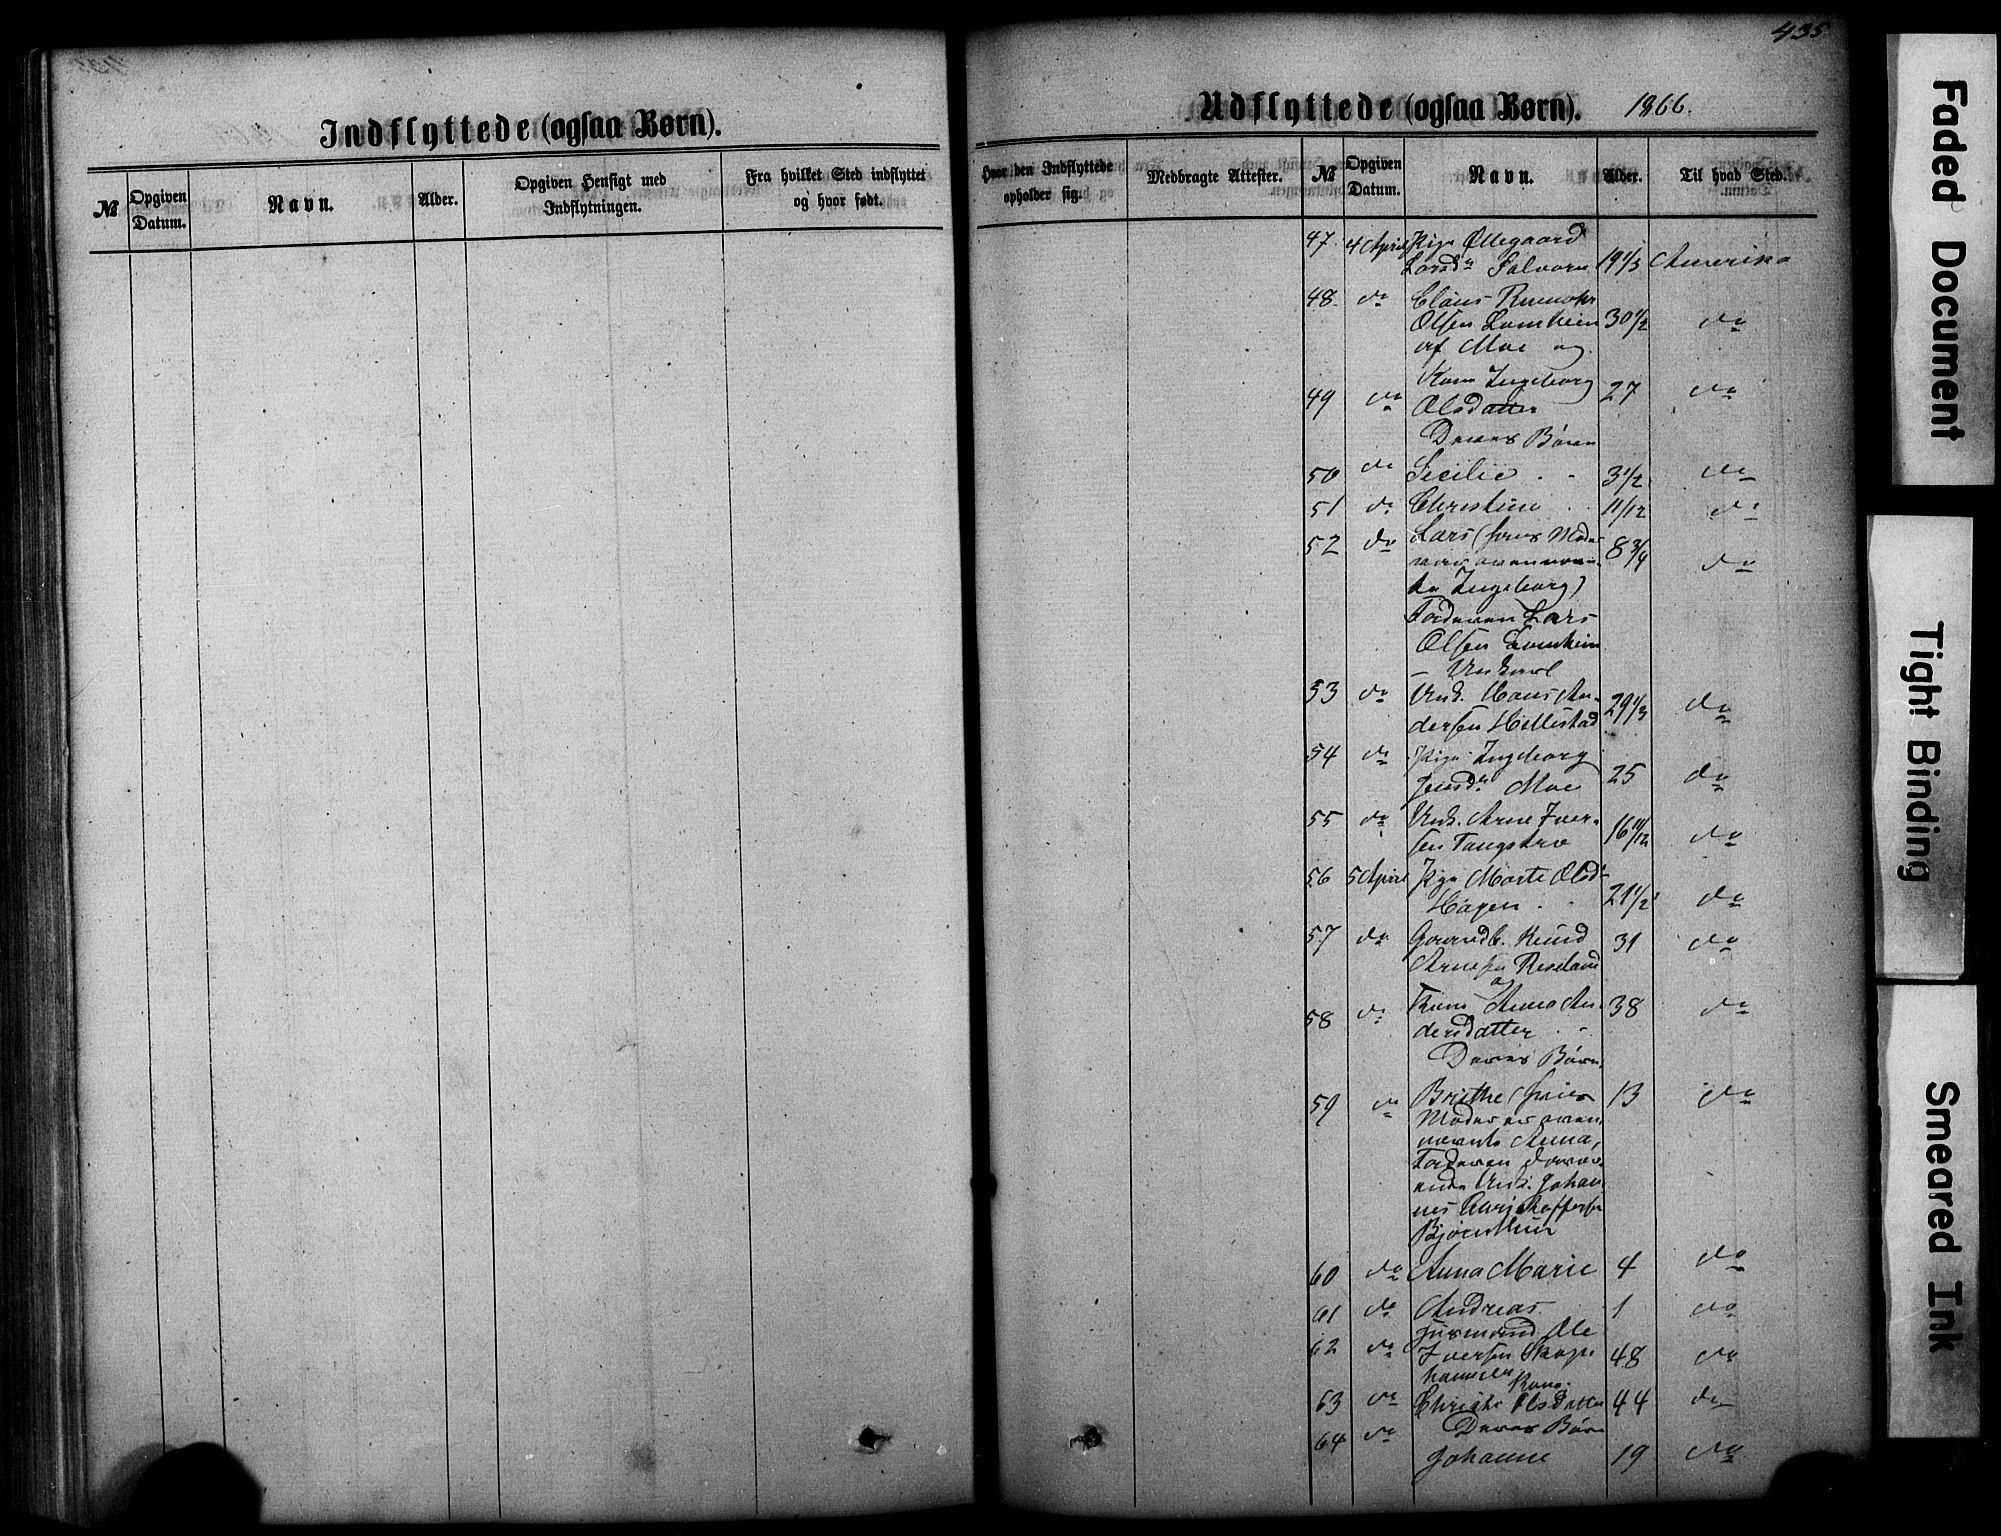 435
Indflyttede (ogsaa Børn).
№
Opgiven Datum.
Navn.
Alder.
Opgiven Hensigt med Indflytningen.
Fra hvilket Sted indflyttet og hvor født.
Udflyttede (ogsaa Børn). 1866.
Hvor den Indflyttede opholder sig.
Medbragte Attester.
№
Opgiven Datum.
Navn.
Alder.
Til hvad Sted.
47 4 April Pige Øllegaard
Larsdr 19 1/3 Amerika
48 do Claus
Olsen Lomheim 30 1/2 do
af Moe og
Kone Ingeborg
49 do Olsdatter 27 do
Deres Børn
50 do Secilie 3 1/2 do
51 do Christine 11/12 do
52 do Lars (hvis Moder 8 3/4 do
Ingeborg)
Faderen Lars
Olsen Lomheim
Ungkarl
53 do Ungk. Hans An-
dersen Hillestad 29 1/3 do
54 do Pige Ingeborg
Jensdr Moe 25 do
55 do Ungk. Arne Iver-
sen 16 11/12 do
56 5 April Pige Marte Olsdr
Hagen 21 1/2 do
57 do Gaardb. Knud 31 do
Arnesen
og
58 do Kone Anna An- 38 do
dersdatter
Deres Børn
59 do Brithe (hvis 13 do
Moder er oven-
nævnte Anna,
Faderen
Ungk. Johan-
nes
60 do Anna Marie 4 do
61 do Andreas 1 do
62 do Huusmand Ole
Iversen 48 do
Kone
63 do Christi Olsdatter 44 do
Deres Børn
64 do Johanne 19 do
Faded Document
Tight Binding
Smeared Ink